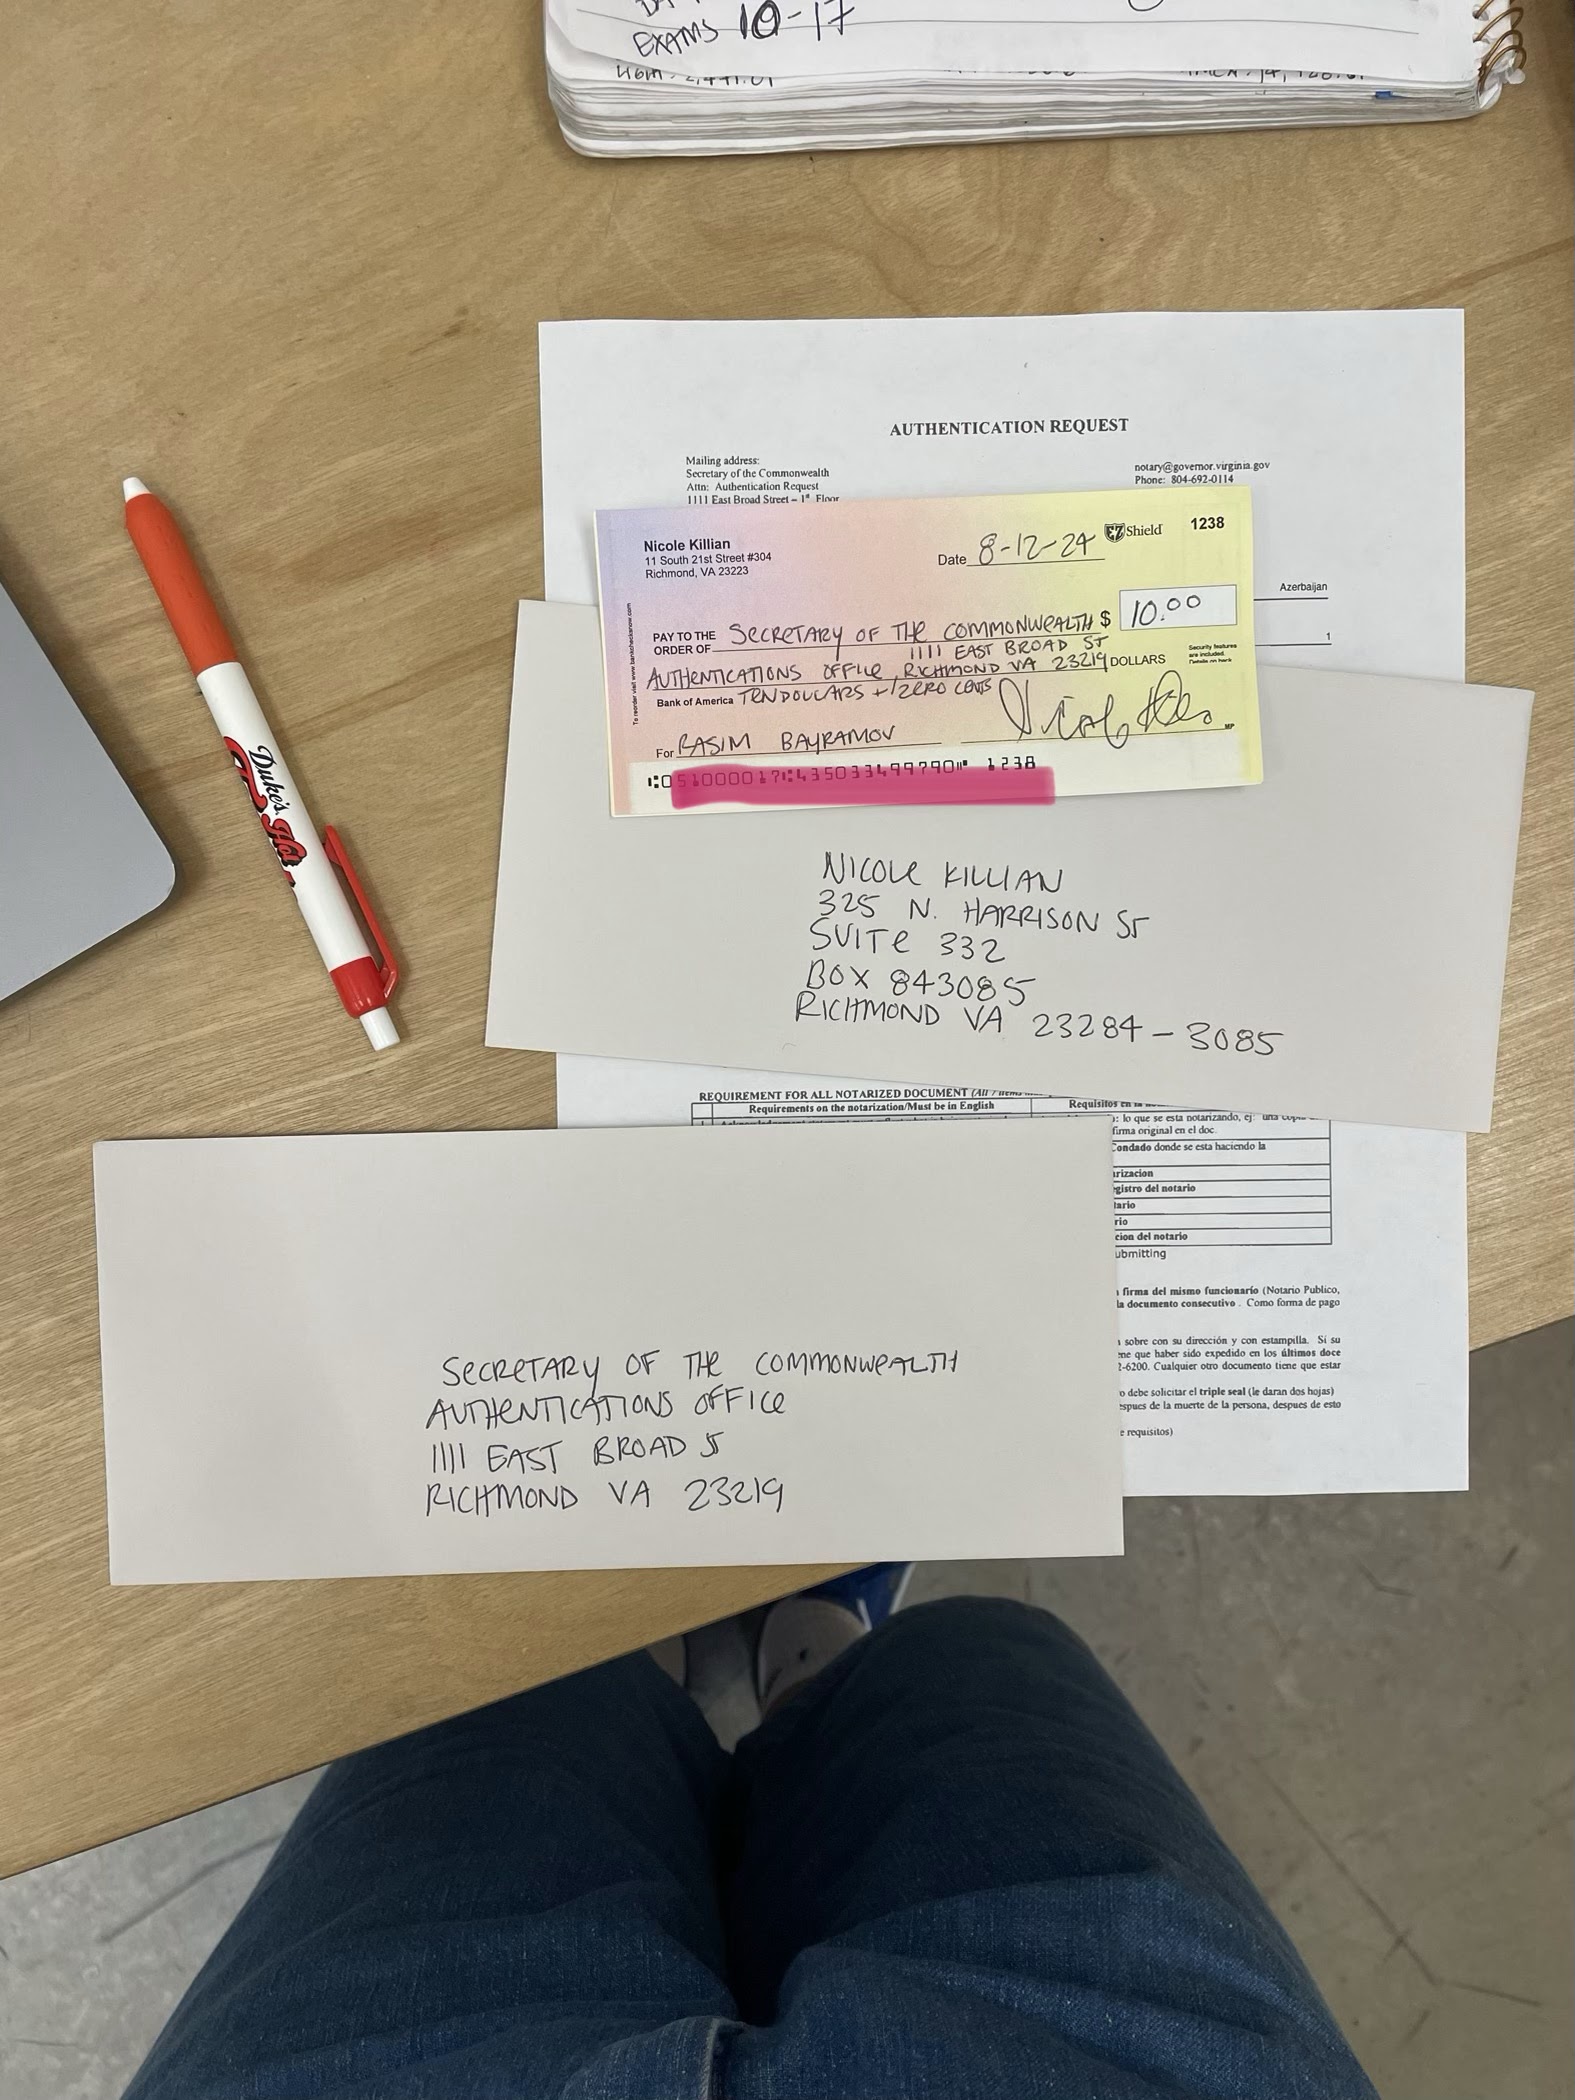 EXAMS 10-17
AUTHENTICATION REQUEST
Mailing address:
Secretary of the Commonwealth
Attn: Authentication Request
1111 East Broad Street – 1st Floor
notary@governor.virginia.gov
Phone: 804-692-0114
Azerbaijan
1
Nicole Killian
11 South 21st Street #304
Richmond, VA 23223
Date 8-12-24
EZ Shield
1238
PAY TO THE ORDER OF SECRETARY OF THE COMMONWEALTH $ 10.00
1111 EAST BROAD ST
AUTHENTICATIONS OFFICE, RICHMOND VA 23219 DOLLARS
Security features are included. Details on back
Bank of America TEN DOLLARS + / ZERO CENTS
For RASIM BAYRAMOV
MP
1238
Duke's
Hot
NICOLE KILLIAN
325 N. HARRISON ST
SUITE 332
BOX 843085
RICHMOND VA 23284-3085
REQUIREMENT FOR ALL NOTARIZED DOCUMENT (All 7 items
Requirements on the notarization/Must be in English
Requisitos en la
: lo que se esta notarizando, ej: una copia
firma original en el doc.
Condado donde se esta haciendo la
arizacion
egistro del notario
tario
rio
cion del notario
ubmitting
firma del mismo funcionarío (Notario Publico,
la documento consecutivo . Como forma de pago
sobre con su dirección y con estampilla. Si su
ene que haber sido expedido en los últimos doce
2-6200. Cualquier otro documento tiene que estar
o debe solicitar el triple seal (le daran dos hojas)
espues de la muerte de la persona, despues de esto
e requisitos)
SECRETARY OF THE COMMONWEALTH
AUTHENTICATIONS OFFICE
1111 EAST BROAD ST
RICHMOND VA 23219